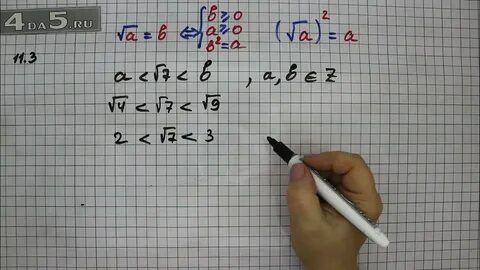 4DA5.RU
√a = b ⇔ { b ⩾ 0
a ⩾ 0
b² = a
(√a)² = a
11.3
a < √7 < b , a, b ∈ Z
√4 < √7 < √9
2 < √7 < 3